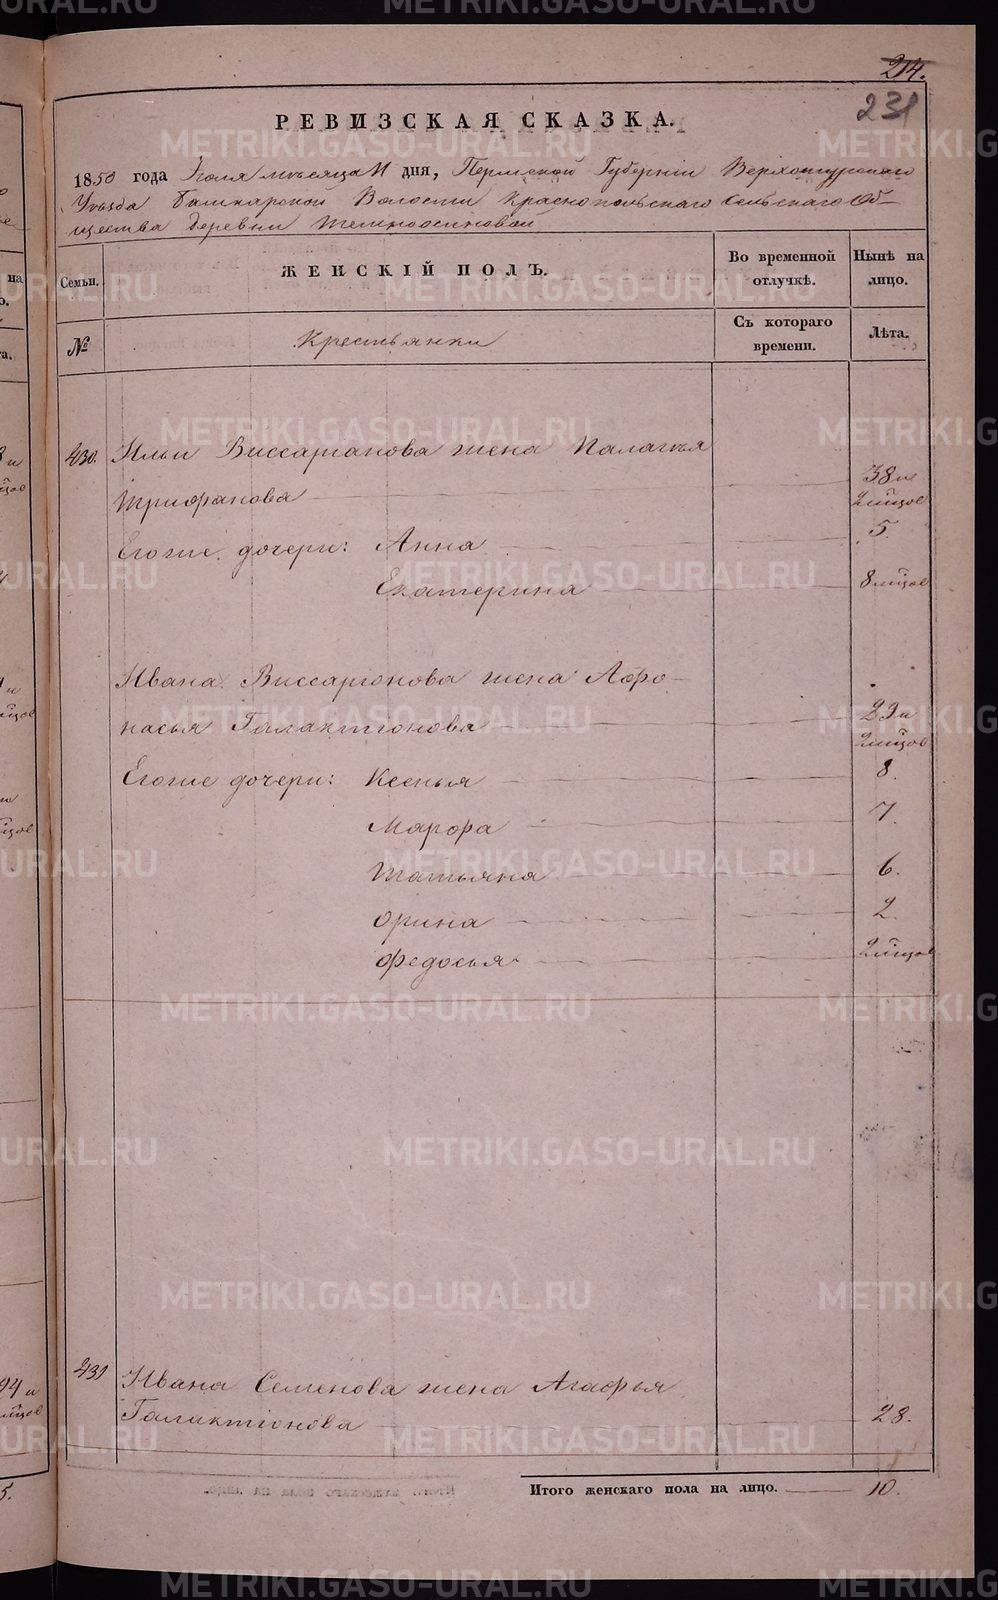 214.
231
РЕВИЗСКАЯ СКАЗКА.
1850 года Іюля месяца 11 дня, Пермской Губерніи Верхотурского
Уезда Башкарской Волости Краснопольского Сельского Об-
щества деревни Темноосиновой
Семьи.
ЖЕНСКІЙ ПОЛЪ.
Во временной отлучкѣ.
Нынѣ на лицо.
№
Крестьянки
Съ котораго времени.
Лѣта.
430. Ильи Виссаріонова жена Палагья
Трифанова 38 и 2 мцов
Егоже дочери: Анна 5.
Екатерина 8 мцов
Ивана Виссаріонова жена Афро-
насья Галактіонова 29 и 2 мцов
Егоже дочери: Ксенья 8.
Марфа 7.
Татьяна 6.
Орина 2.
Федосья 2 мцов
431 Ивана Семенова жена Агафья
Галактіонова 28.
Итого женскаго пола на лицо. 10.
METRIKI.GASO-URAL.RU